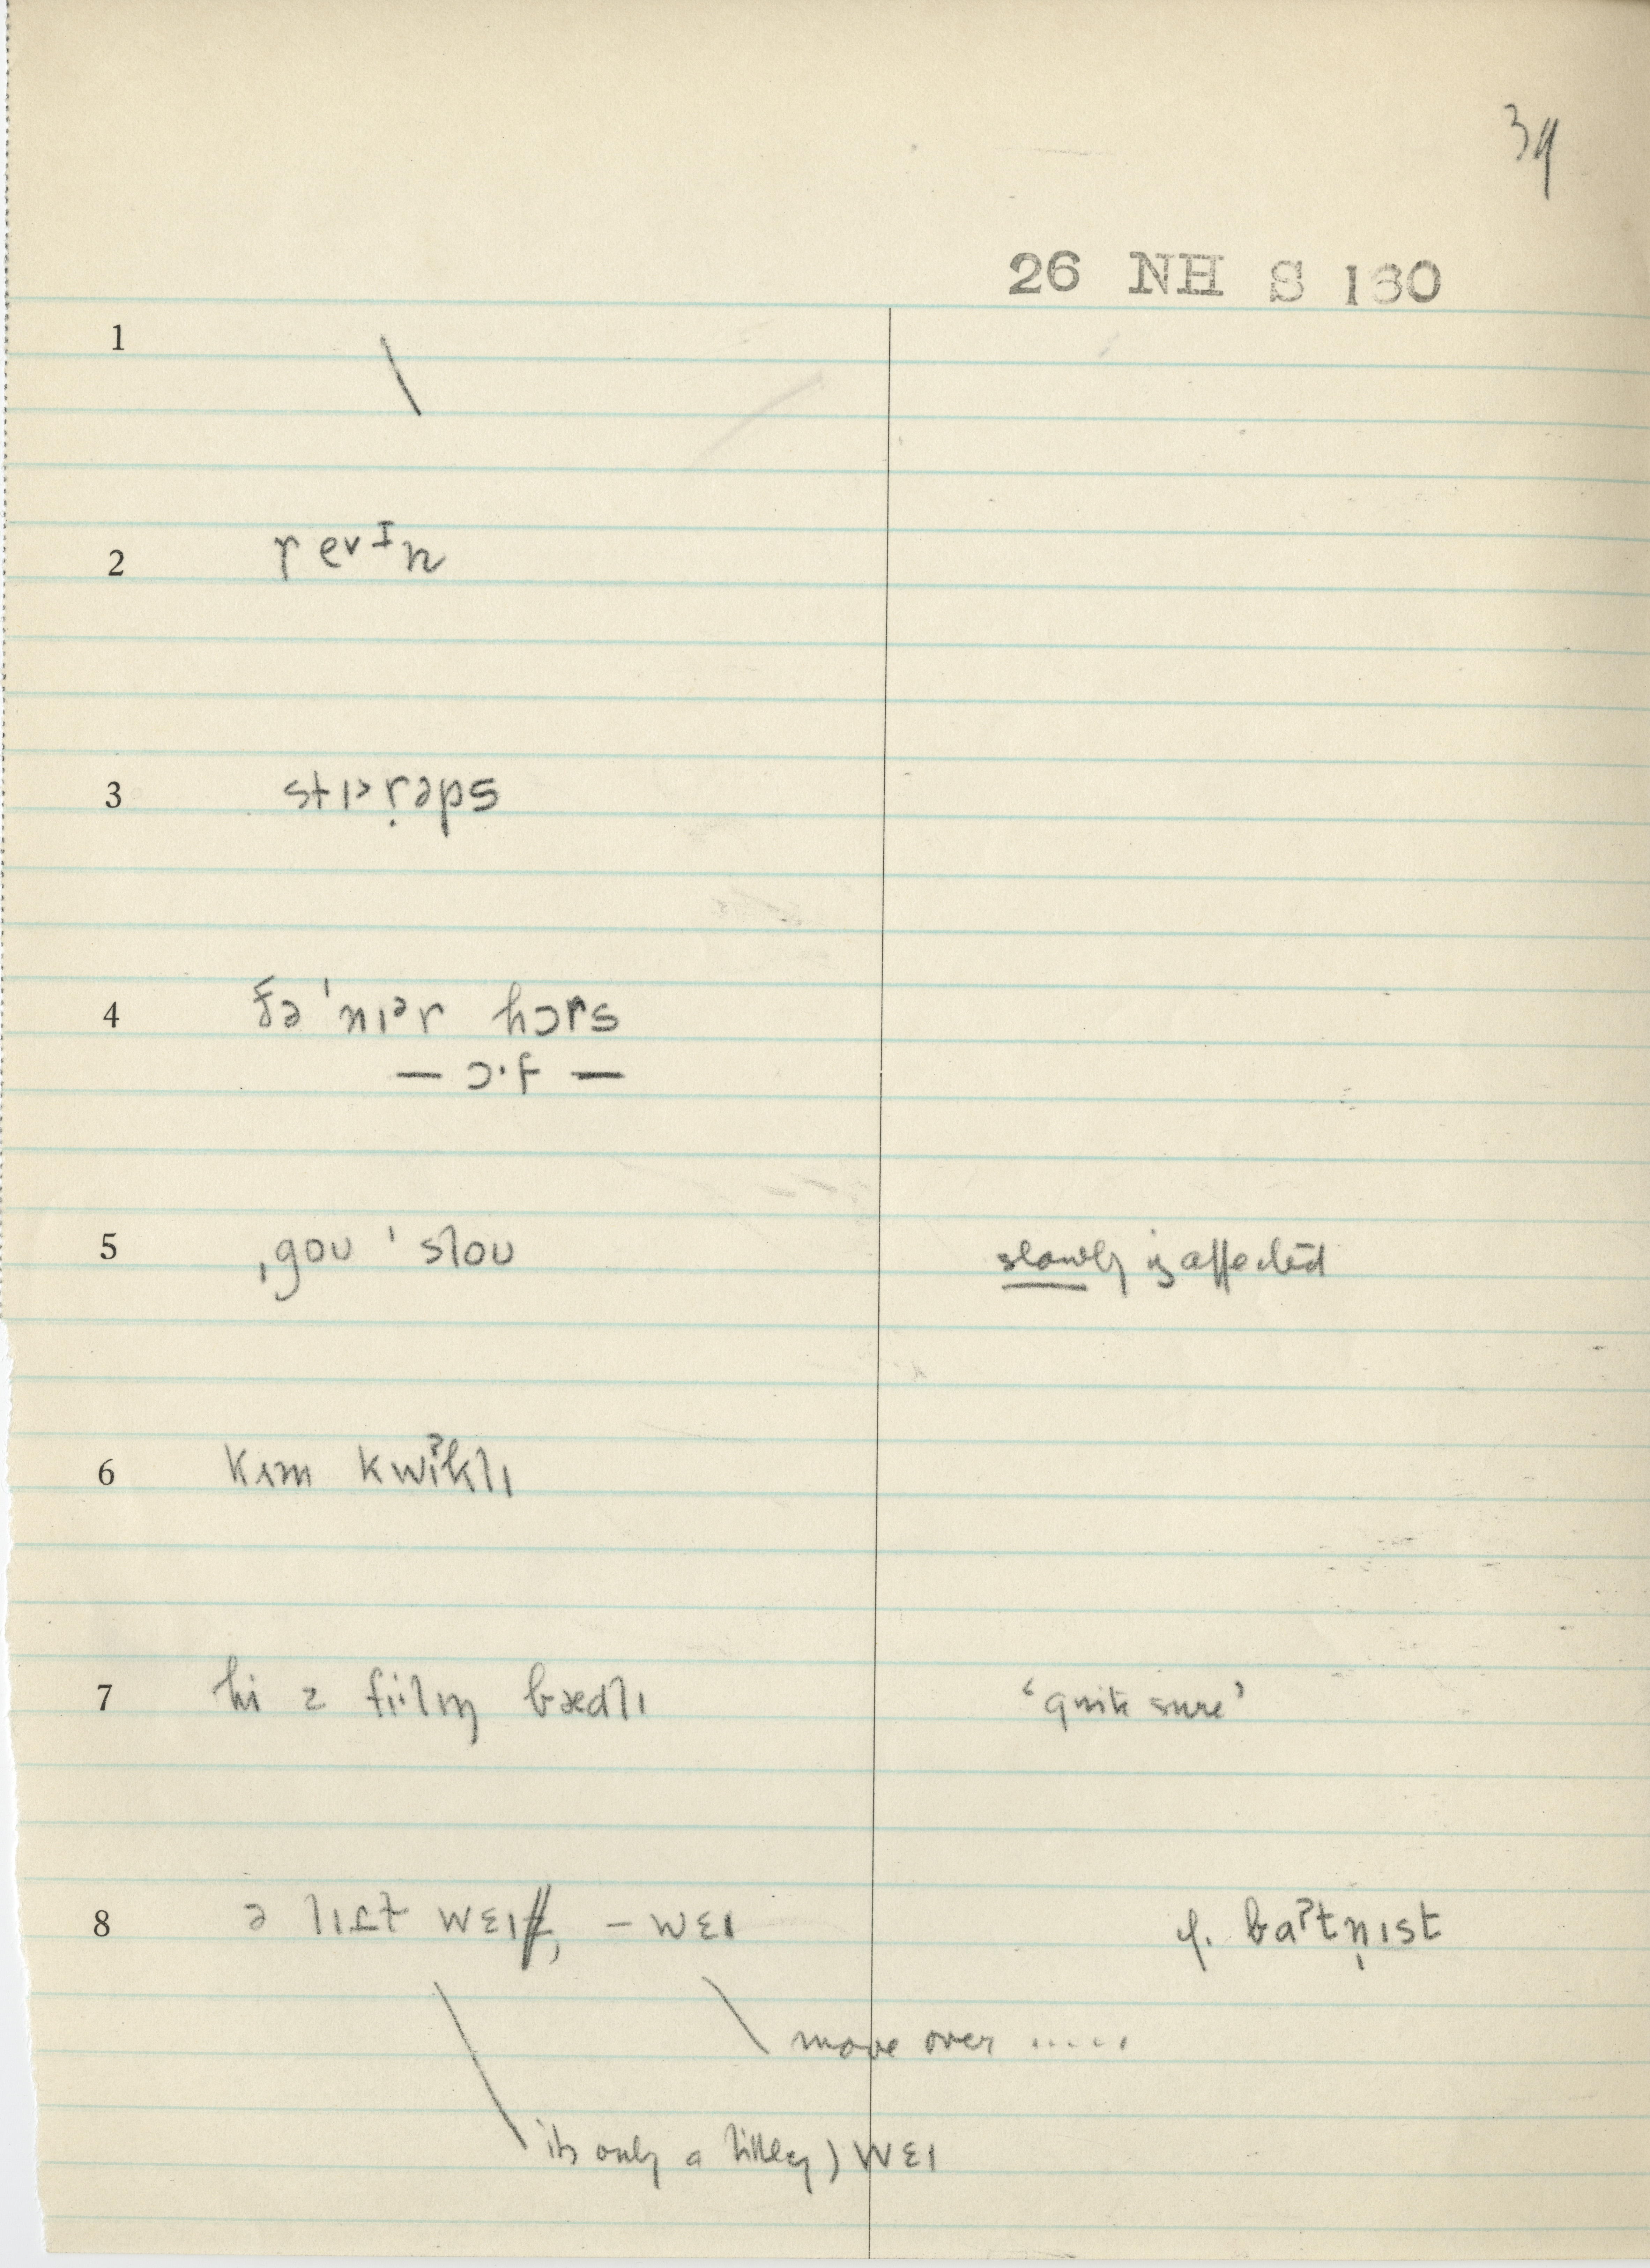 39
26 NH S 130
1 \
2 revᴵn
3 stɪᵊṛəps
4 ðə ˈnɪᵊr hɔrs
— ɔ·f —
5 ˌgoʊ ˈsloʊ slowly is affected
6 kʌm kwɪˀklɪ
7 hi z fiːlɪŋ bædlɪ ‘quite sure’
8 ə lɪt wɛɪ, – wɛɪ cf. baˀtn̩ɪst
move over .....
its only a little) wɛɪ